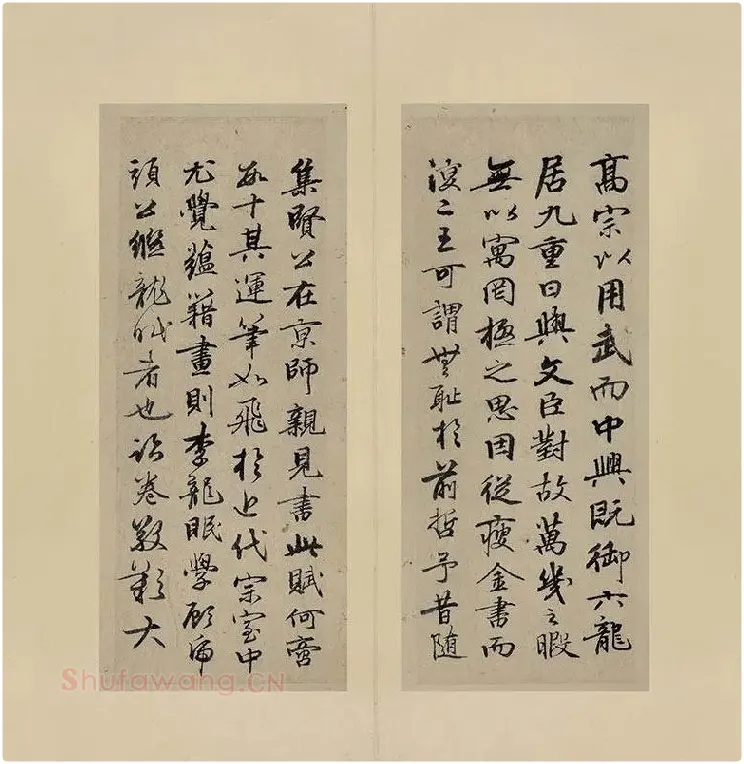 高宗以用武而中興既御六龍
居九重日與文臣對故萬幾之暇
無以寓罔極之思因從瘦金書而
復二王可謂無耻於前哲予昔隨
集賢公在京師親見書此賦何啻
數十其運筆如飛於近代宗室中
尤覺蘊籍畫則李龍眠學顧虎
頭公繼龍眠者也卷大
Shufawang.CN